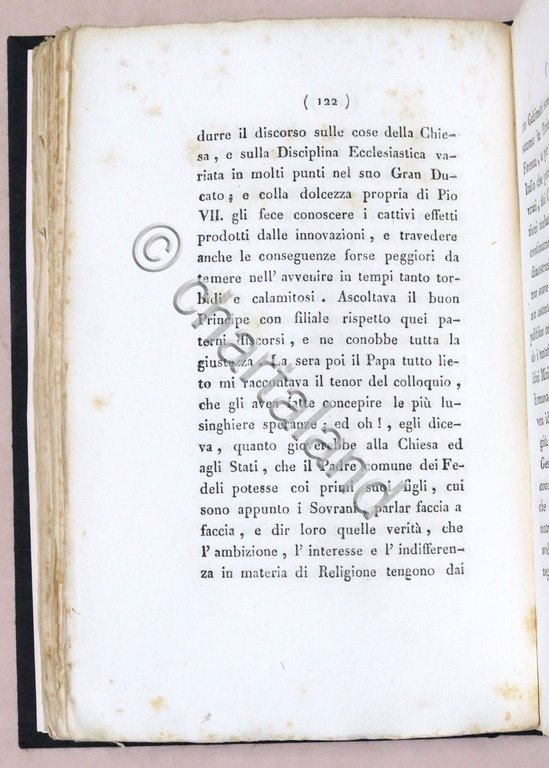 ( 122 )
durre il discorso sulle cose della Chie-
sa , e sulla Disciplina Ecclesiastica va-
riata in molti punti nel suo Gran Du-
cato ; e colla dolcezza propria di Pio
VII. gli fece conoscere i cattivi effetti
prodotti dalle innovazioni , e travedere
anche le conseguenze forse peggiori da
temere nell' avvenire in tempi tanto tor-
bidi e calamitosi . Ascoltava il buon
Principe con filiale rispetto quei pa-
terni discorsi , e ne conobbe tutta la
giustezza . La sera poi il Papa tutto lie-
to mi raccontava il tenor del colloquio ,
che gli avea fatte concepire le più lu-
singhiere speranze : ed oh ! , egli dice-
va , quanto gioverebbe alla Chiesa ed
agli Stati , che il Padre comune dei Fe-
deli potesse coi primi suoi figli , cui
sono appunto i Sovrani , parlar faccia a
faccia , e dir loro quelle verità , che
l' ambizione , l' interesse e l' indifferen-
za in materia di Religione tengono dai
© chartaland